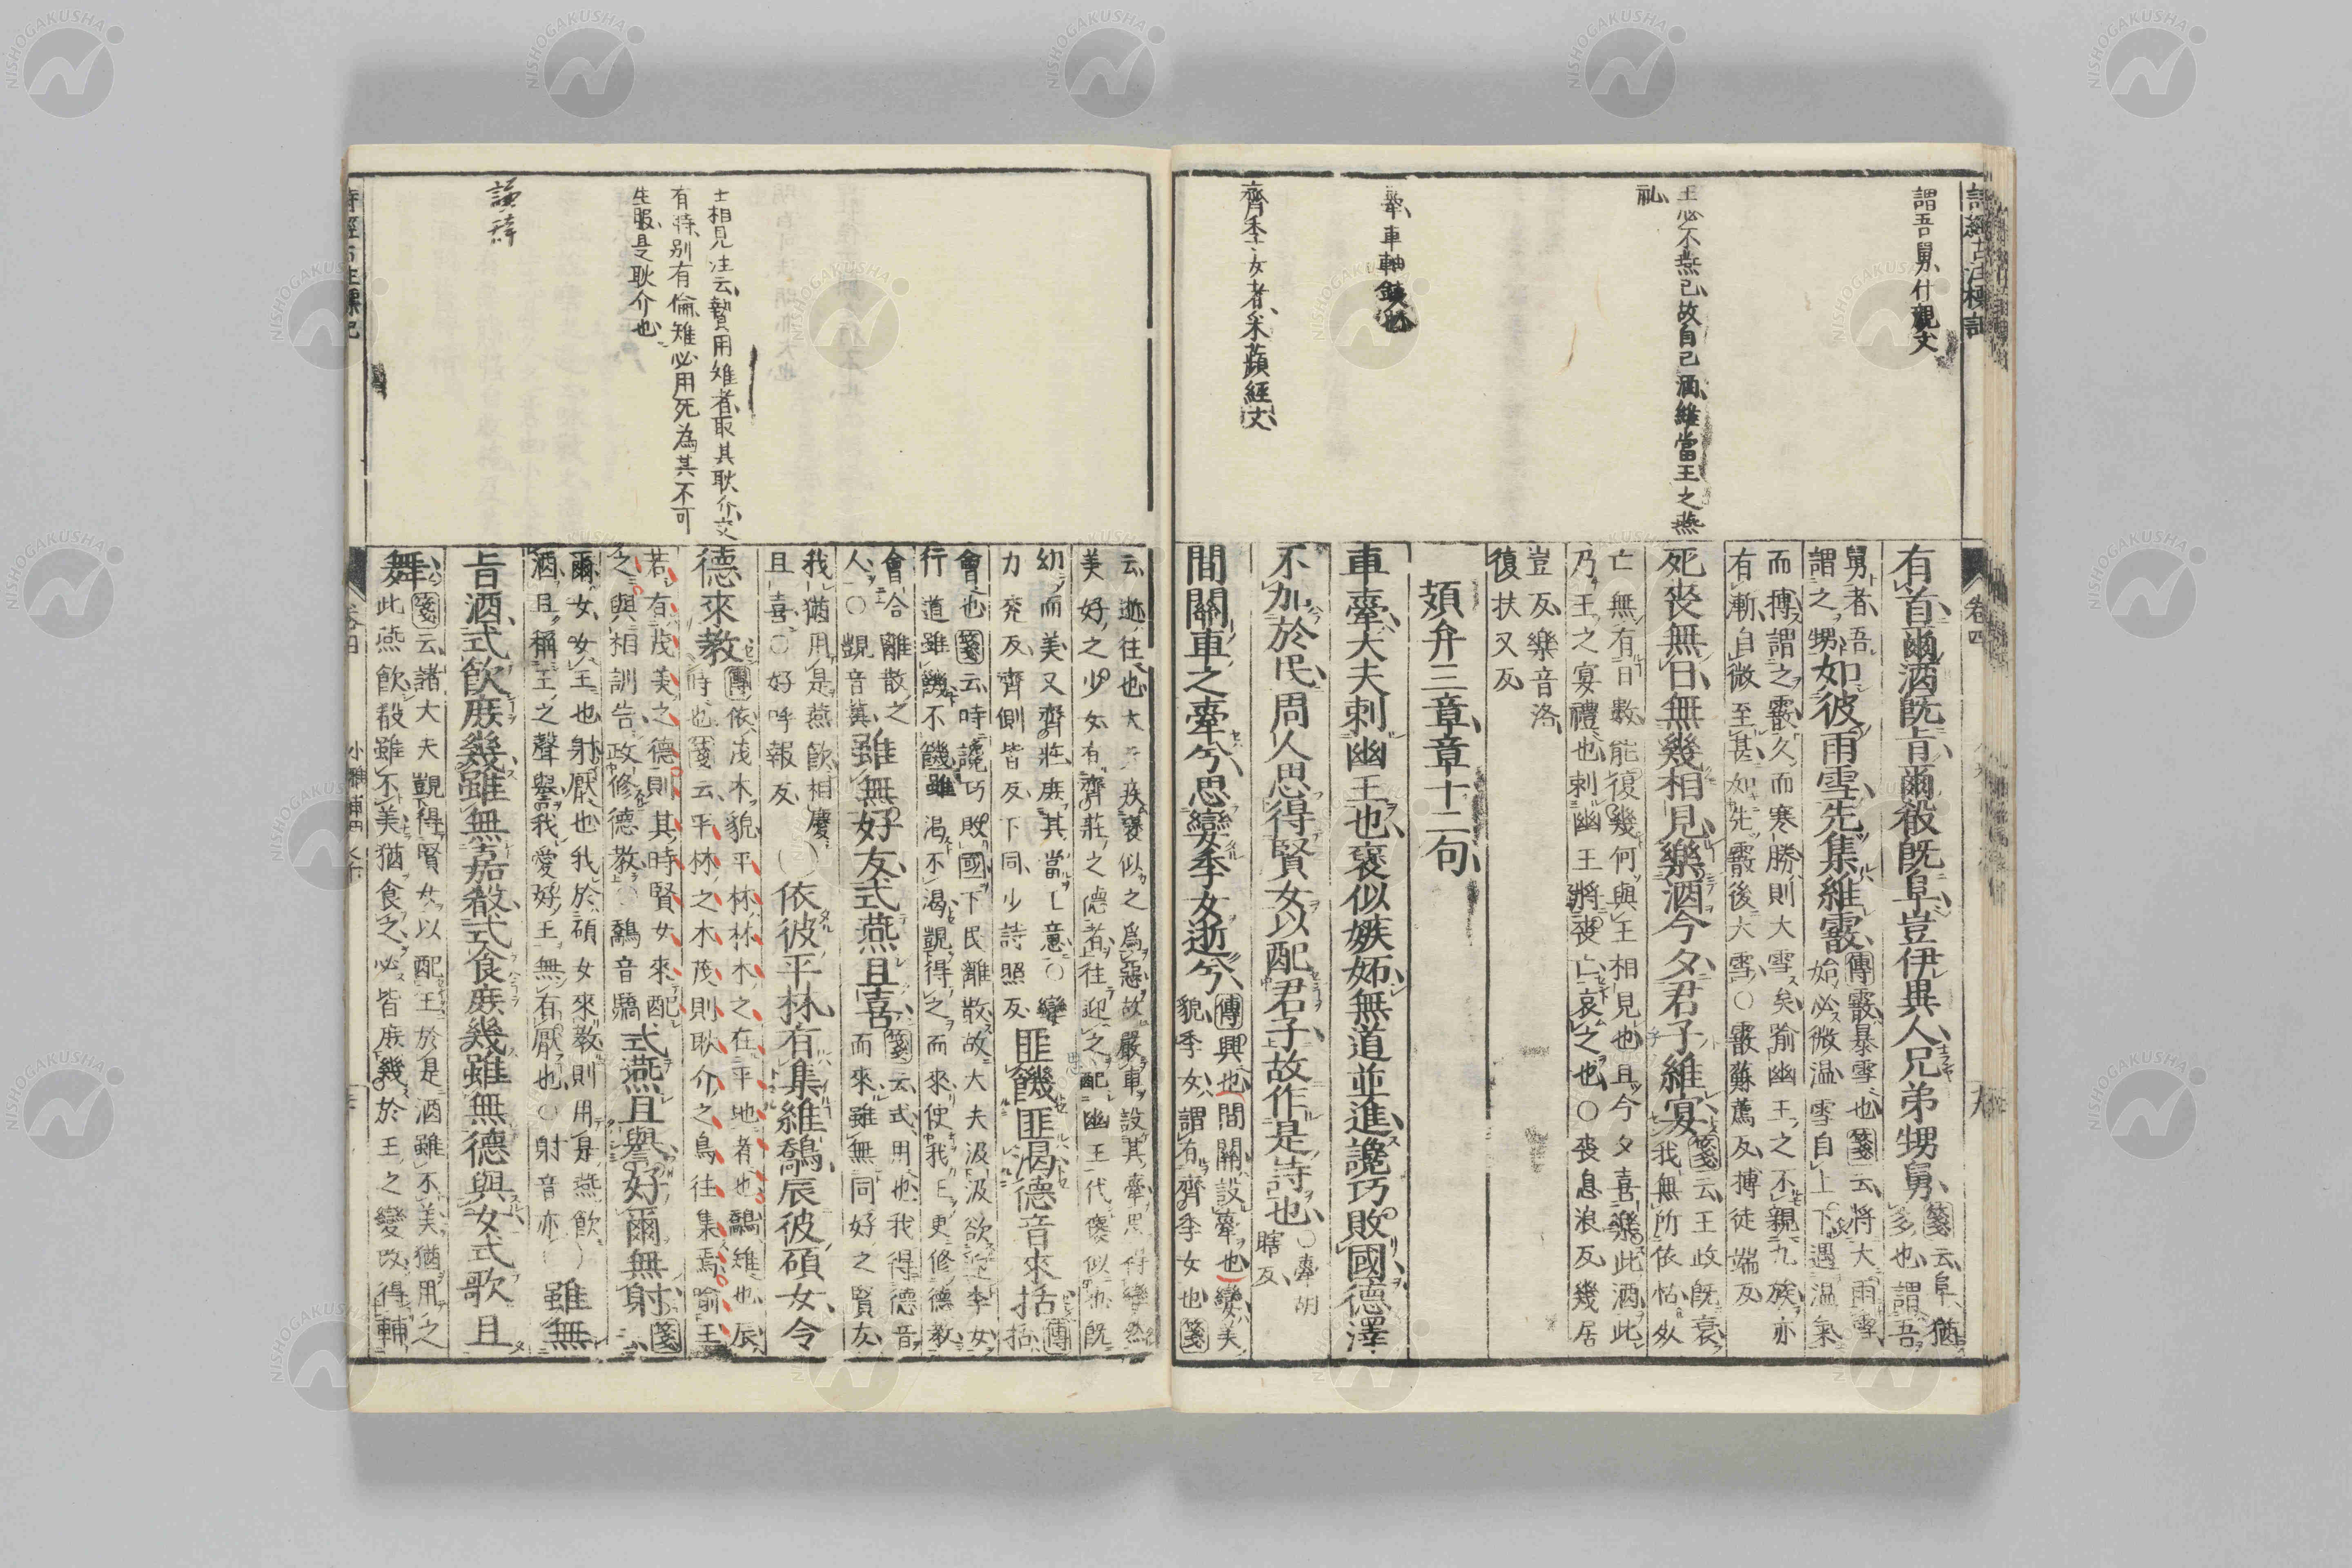 詩經古注標記
卷四
謂吾舅什親丈
王必不燕已故自己酒維當王之燕
礼
舝車軸鉄也
齊季女者采蘋經文
有首爾酒既旨爾殽既阜豈伊異人兄弟甥舅
箋云阜猶
多也謂吾
舅者吾
謂之甥
如彼雨雪先集維霰
傳霰暴雪也箋云將大雨雪
始必微温雪自上下遇温氣
而摶謂之霰久而寒勝則大雪矣喻幽王之不親九族亦
有漸自微至甚如先霰後大雪○霰蘇薦反摶徒端反
死喪無日無幾相見樂酒今夕君子維宴
箋云王政既衰
我無所依怙死
亡無有日數能復幾何與王相見也且今夕喜樂此酒此
乃王之宴禮也刺幽王將喪亡哀之也○喪息浪反幾居
豈反樂音洛
復扶又反
頍弁三章章十二句
車舝大夫刺幽王也褒似嫉妬無道並進讒巧敗國德澤
不加於民周人思得賢女以配君子故作是詩也
○舝胡
瞎反
間關車之舝兮思孌季女逝兮
傳興也間關設舝也孌美
貌季女謂有齊季女也箋
士相見注云贄用雉者取其耿介交
有時別有倫雉必用死為其不可
生服是耿介也
云逝往也大夫疾褒似之爲惡故嚴車設其舝思得孌然
美好之少女有齊莊之德者往迎之配幽王代褒似也既
幼而美又齊莊庶其當王意○孌
力兖反齊側皆反下同少詩照反
匪饑匪渴德音來括
傳
括
會也箋云時讒巧敗國下民離散故大夫汲汲欲迎季女
行道雖饑不饑雖渴不渴覬得之而來使我王更修德教
會合離散之
人○覬音冀
雖無好友式燕且喜
箋云式用也我得德音
而來雖無同好之賢友
我猶用是燕飲相慶
且喜○好呼報反
依彼平林有集維鷮辰彼碩女令
德來教
傳依茂木貌平林林木之在平地者也鷮雉也辰
時也箋云平林之木茂則耿介之鳥往集焉喻王
若有茂美之德則其時賢女來配
之與相訓告改修德教○鷮音驕
式燕且譽好爾無射
箋
云
爾女女王也射厭也我於碩女來教則用是燕飲
酒且稱王之聲譽我愛好王無有厭也○射音亦
雖無
旨酒式飲庶幾雖無嘉殽式食庶幾雖無德與女式歌且
舞
箋云諸大夫覬得賢女以配王於是酒雖不美猶用之
此燕飲殽雖不美猶食之必皆庶幾於王之變改得輔